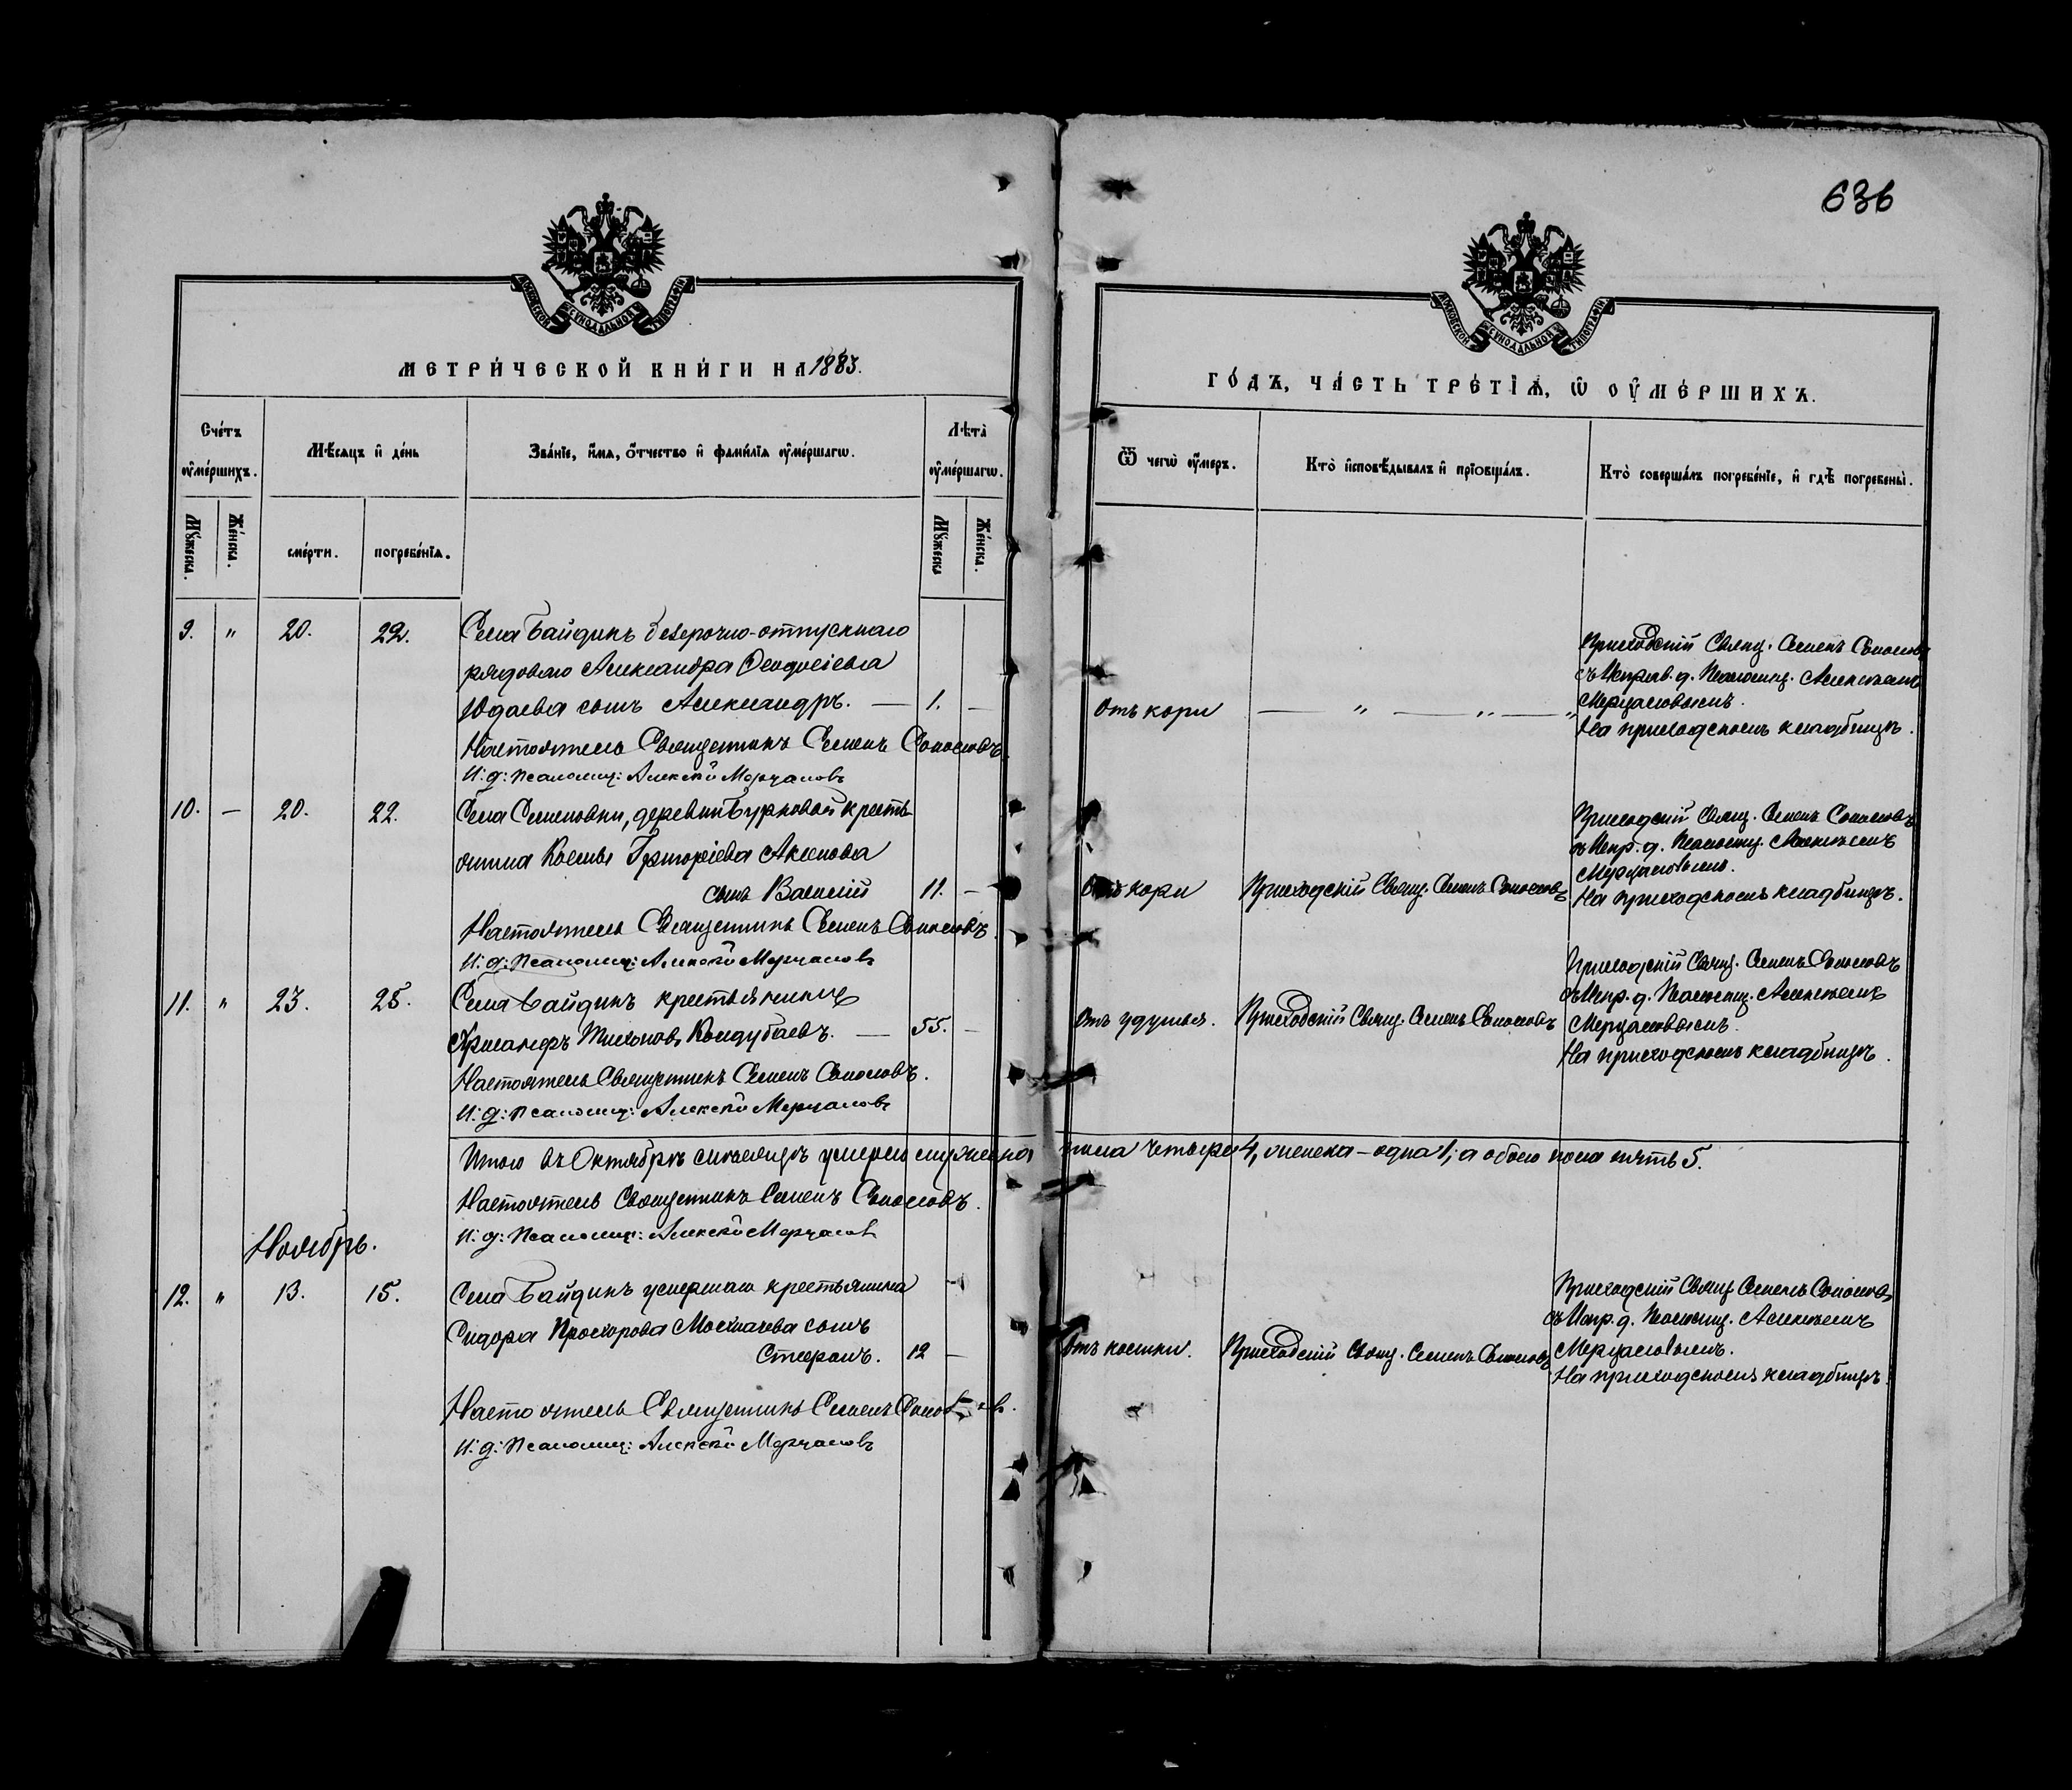 636
МОСКОВСКОЙ СѴНОДАЛЬНОЙ ТИПОГРАФІИ
МОСКОВСКОЙ СѴНОДАЛЬНОЙ ТИПОГРАФІИ
МЕТРИ́ЧЕСКОЙ КНИ́ГИ НА 1883.
ГО́ДЪ, ЧА́СТЬ ТРЕ́ТІѦ, Ѡ ОУ҆МЕ́РШИХЪ.
Сче́тъ оу҆ме́ршихъ.
Мѣ́сяцъ и҆ де́нь
Зва́нїе, и҆́мѧ, ѻ҆́тчество и҆ фами́лїѧ оу҆ме́ршагѡ.
Лѣта̀ оу҆ме́ршагѡ.
Ѿ чегѡ̀ оу҆́меръ.
Кто̀ и҆сповѣ́дывалъ и҆ прїѻбща́лъ.
Кто̀ соверша́лъ погребе́нїе, и҆ гдѣ̀ погребены̀.
Мꙋ́жеска.
Же́нска.
сме́рти.
погребе́нїѧ.
Мꙋ́жеска
Же́нска.
9. " 20. 22. Села Байдикъ безсрочно-отпускнаго
рядоваго Александра Ѳеодосіева
Юдаева сынъ Александръ. — 1. —
Настоятель Священникъ Семенъ Соколовъ
И: д: псаломщ: Алексѣй Мерцаловъ
Отъ кори — " — " — "
Приходскій Свящ. Семенъ Соколовъ
съ Исправ. д. Псаломщ. Алексѣемъ
Мерцаловымъ.
На приходскомъ кладбищѣ.
10. — 20. 22. Села Семеновки, деревни Бурковой кресть-
янина Косьмы Григоріева Аксенова
сынъ Василій 11. —
Настоятель Священникъ Семенъ Соколовъ.
И: д: псаломщ: Алексѣй Мерцаловъ
Отъ кори Приходскій Свящ. Семенъ Соколовъ
Приходскій Свящ. Семенъ Соколовъ
съ Испр. д. Псаломщ. Алексѣемъ
Мерцаловымъ.
На приходскомъ кладбищѣ.
11. " 23. 25. Села Байдикъ крестьянинъ
Тихоновъ 55. —
Настоятель Священникъ Семенъ Соколовъ.
И: д: псаломщ: Алексѣй Мерцаловъ
Отъ удушья. Приходскій Свящ. Семенъ Соколовъ
Приходскій Свящ. Семенъ Соколовъ
съ Испр. д. Псаломщ. Алексѣемъ
Мерцаловымъ.
На приходскомъ кладбищѣ.
Итого въ Октябрѣ мѣсяцѣ умерло мужеска пола четыре 4, женска – одна 1; а обоего пола пять 5.
Настоятель Священникъ Семенъ Соколовъ.
И: д: псаломщ: Алексѣй Мерцаловъ
Ноябрь.
12. " 13. 15. Села Байдикъ умершаго крестьянина
Сидора Прохорова сынъ
Стефанъ. 12 —
Настоятель Священникъ Семенъ Соколовъ.
И: д: псаломщ: Алексѣй Мерцаловъ
Приходскій Свящ. Семенъ Соколовъ
Приходскій Свящ. Семенъ Соколовъ
съ Испр. д. Псаломщ. Алексѣемъ
Мерцаловымъ.
На приходскомъ кладбищѣ.